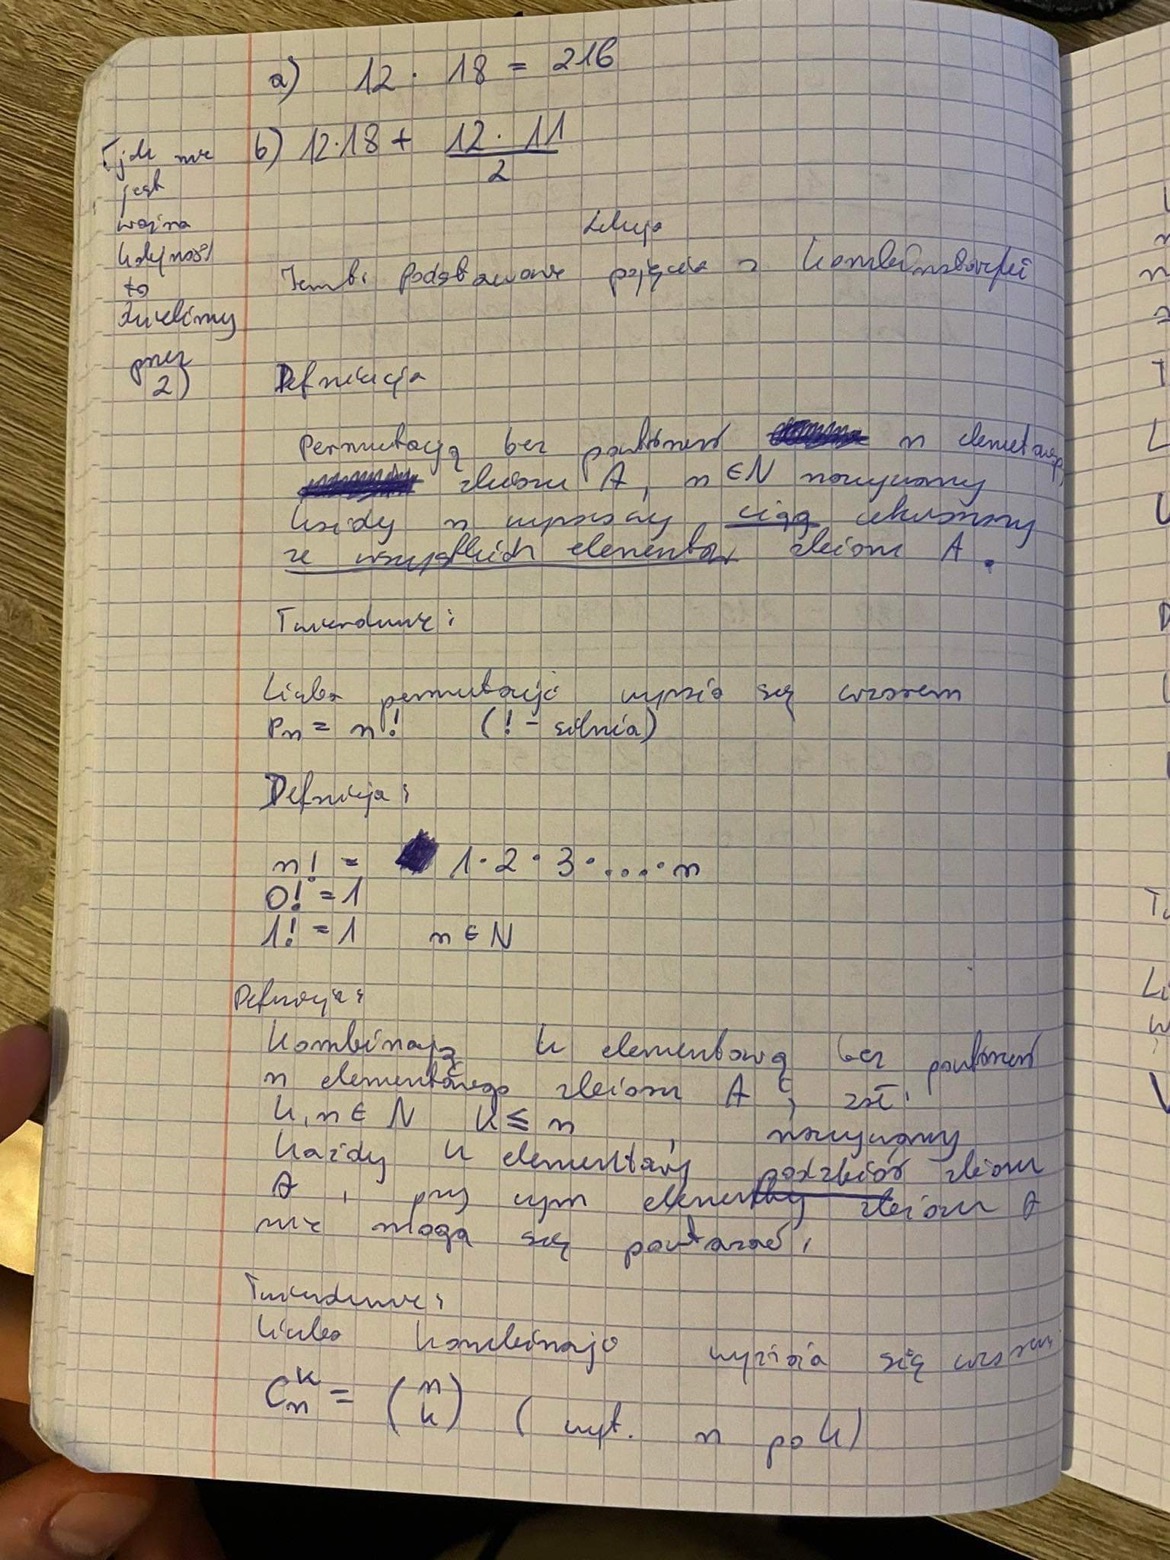 a) 12 · 18 = 216
b) 12·18 + 12 · 11 / 2
(jak nie
jest
ważna
kolejność
to
dzielimy
przez
2)
Lekcja
Temat: Podstawowe pojęcia z kombinatoryki
Definicja
Permutacją bez powtórzeń n elementowego
zbioru A, n ∈ N nazywamy
każdy n wyrazowy ciąg utworzony
ze wszystkich elementów zbioru A.
Twierdzenie:
Liczba permutacji wyraża się wzorem
Pn = n! (! - silnia)
Definicja:
n! = 1·2·3·....·n
0! = 1
1! = 1 n ∈ N
Definicja:
Kombinacją k elementową bez powtórzeń
n elementowego zbioru A,
k, n ∈ N k ≤ n, nazywamy
każdy k elementowy podzbiór zbioru
A, przy czym elementy zbioru A
nie mogą się powtarzać,
Twierdzenie:
Liczba kombinacji wyraża się wzorem
C_n^k = (n k) (czyt. n po k)